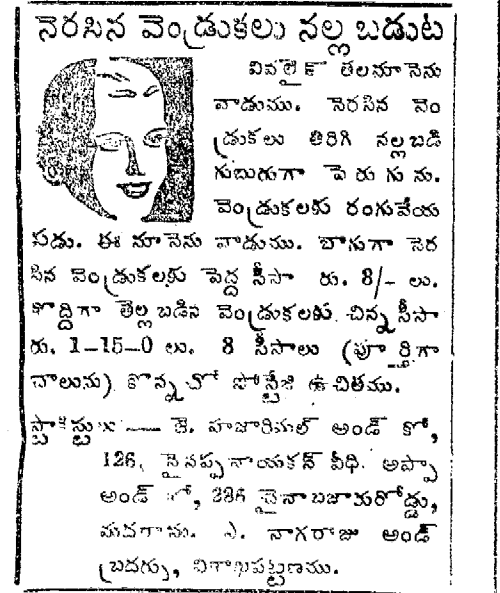 నెరసిన వెండ్రుకలు నల్లబడుట
తలనూనెను
వాడుము. నెరసిన వెం
డ్రుకలు తిరిగి నల్లబడి
గుబురుగా పెరుగును.
వెండ్రుకలకు రంగువేయ
పడు. ఈ నూనెను వాడుము. బాగుగా నెర
సిన వెండ్రుకలకు పెద్ద సీసా రు. 8/- లు.
కొద్దిగా తెల్లబడిన వెండ్రుకలకు చిన్న సీసా
రు. 1-15-0 లు. 3 సీసాలు (పూర్తిగా
చాలును) కొన్నచో పోస్టేజి ఉచితము.
స్టాకిస్టులు — జె. హజారిమల్ అండ్ కో,
126, నైనప్పనాయకన్ వీధి. అప్పా
అండ్ కో, 286 చైనాబజారురోడ్డు,
మదరాసు. ఎ. నాగరాజు అండ్
బ్రదర్సు, విశాఖపట్టణము.